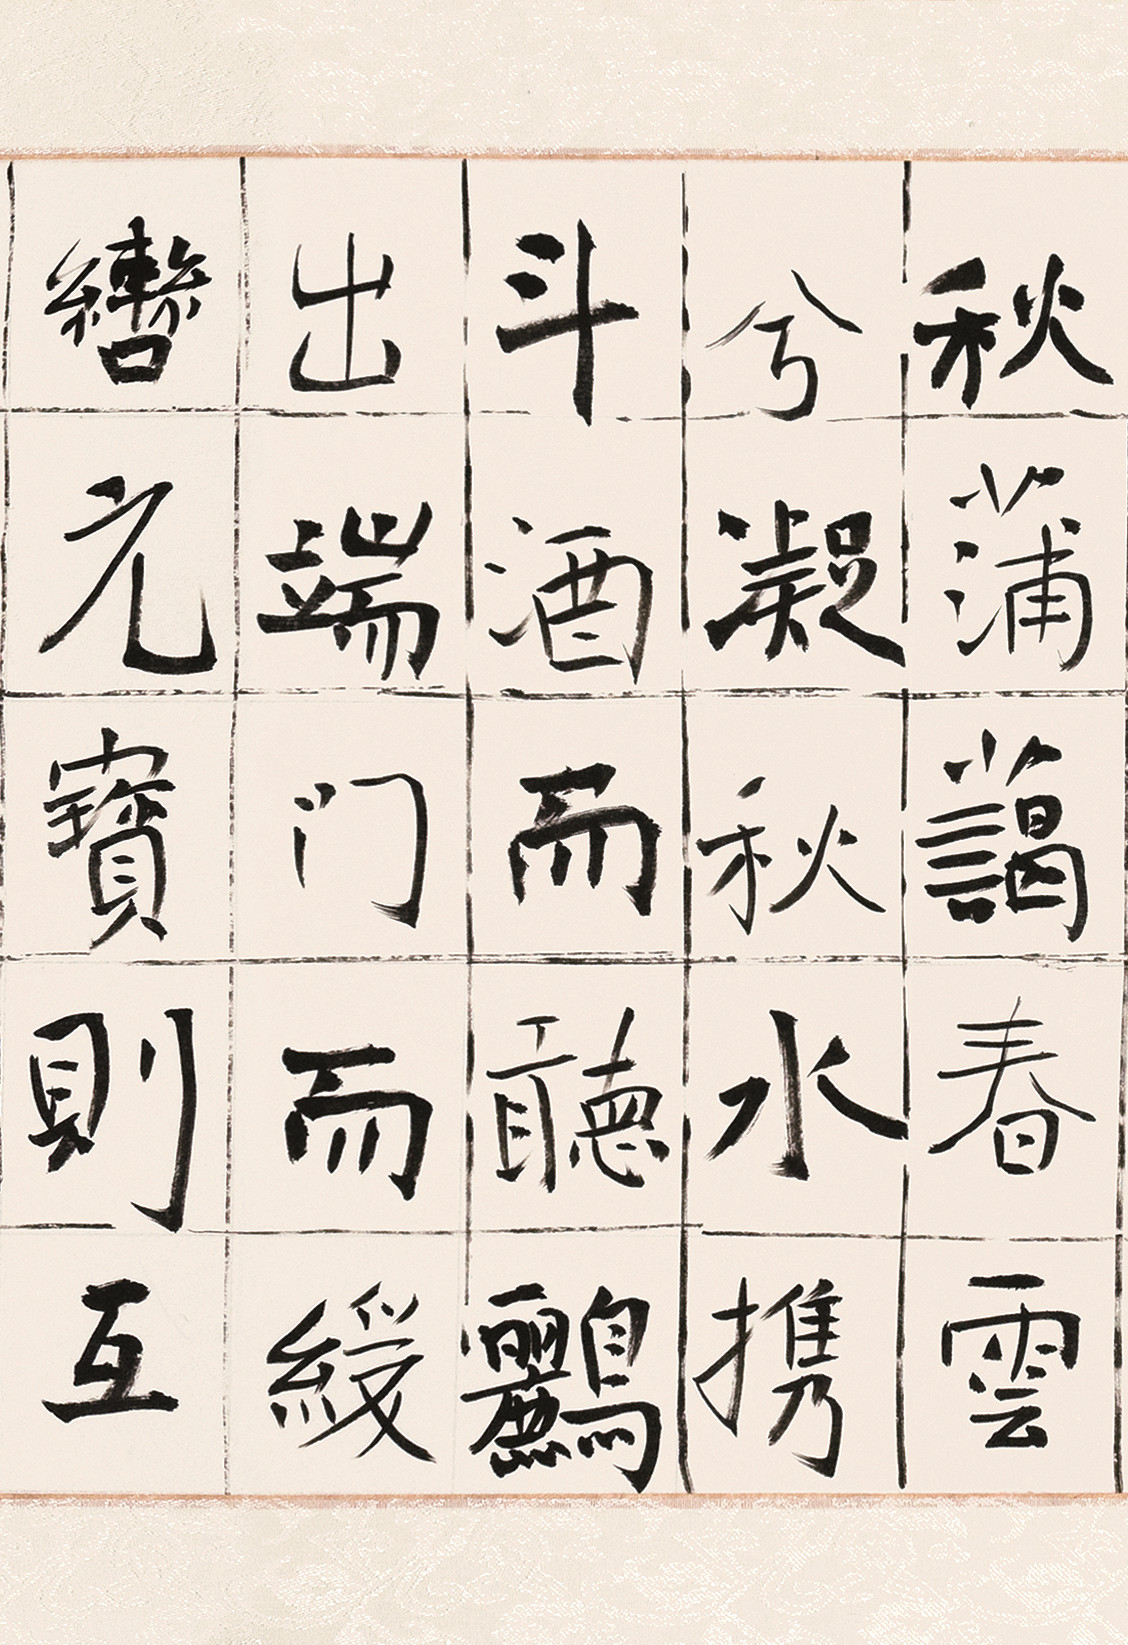 秋蒲藹春雲
兮凝秋水携
斗酒而聽鸝
出端门而緩
轡元寶則互